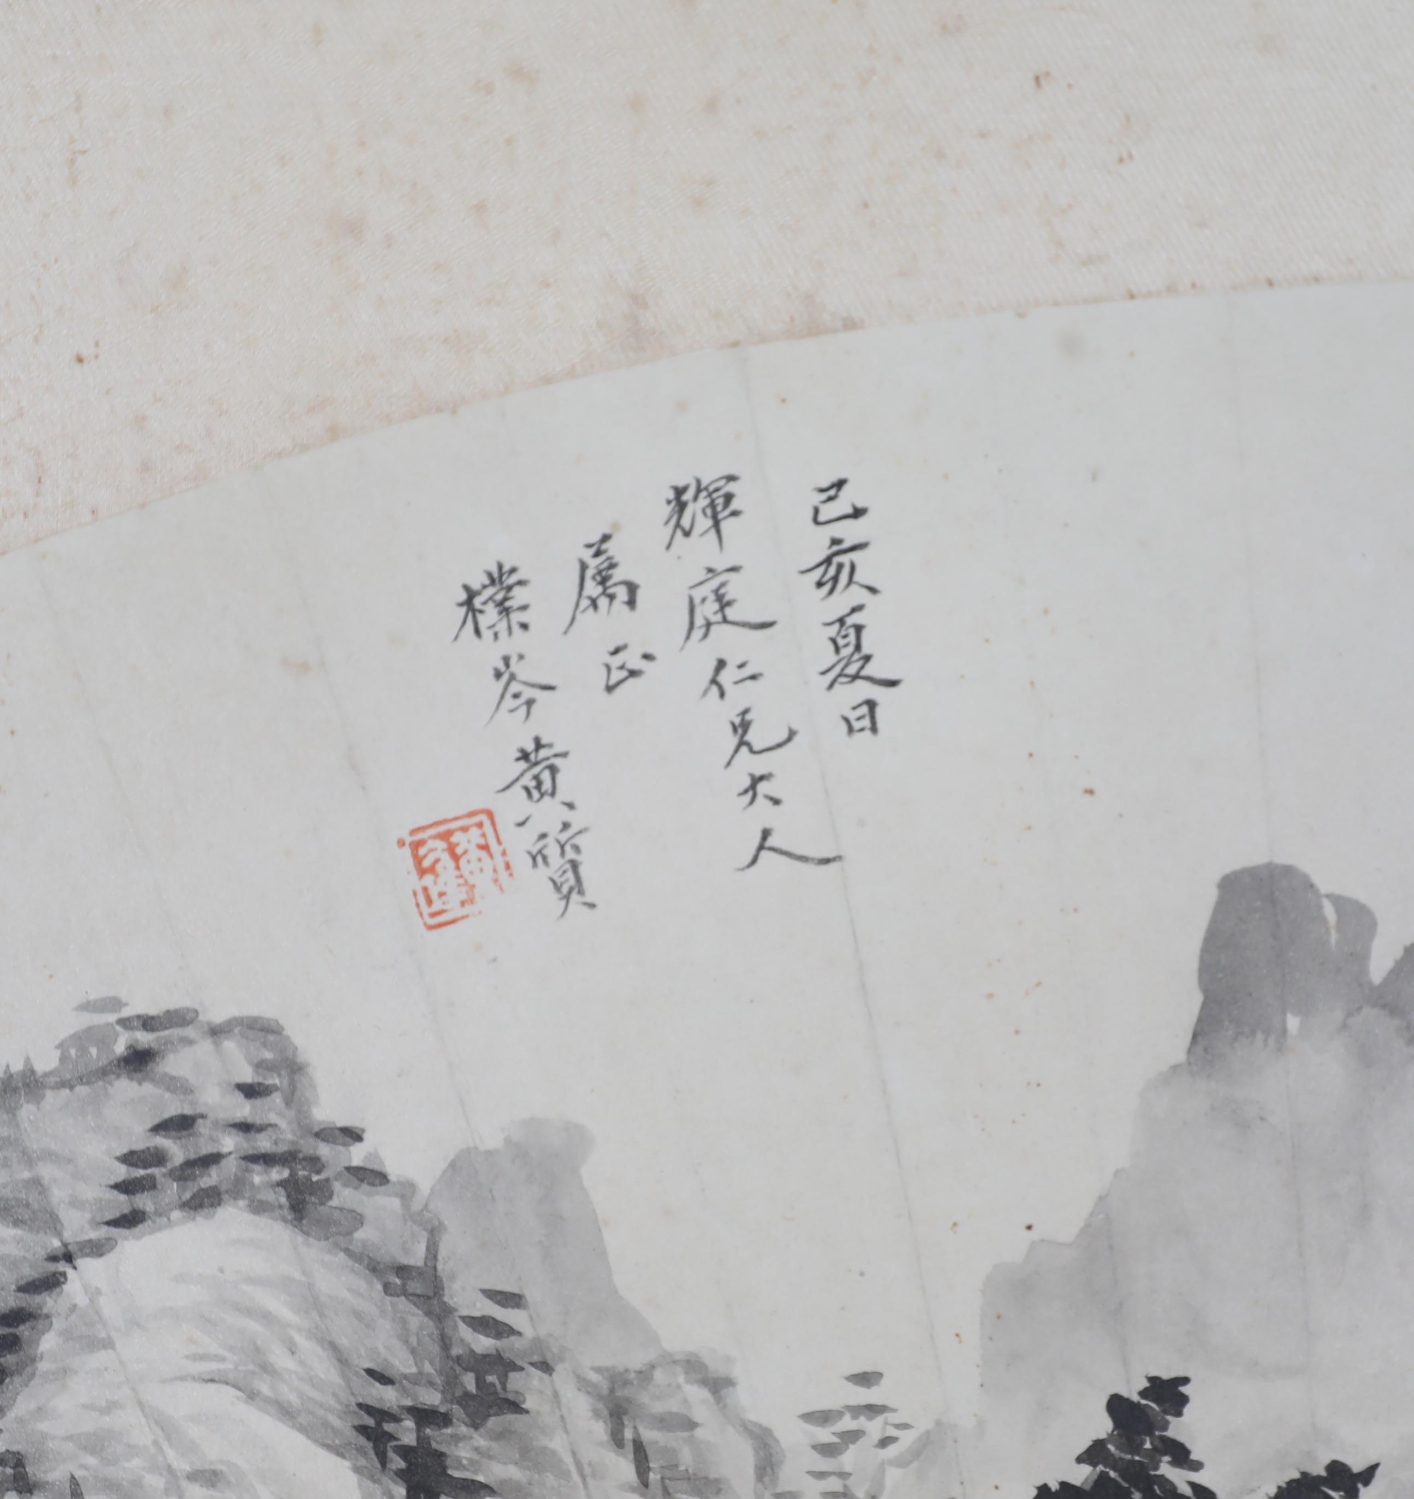 己亥夏日
輝庭仁兄大人
屬正
樸岑黄質